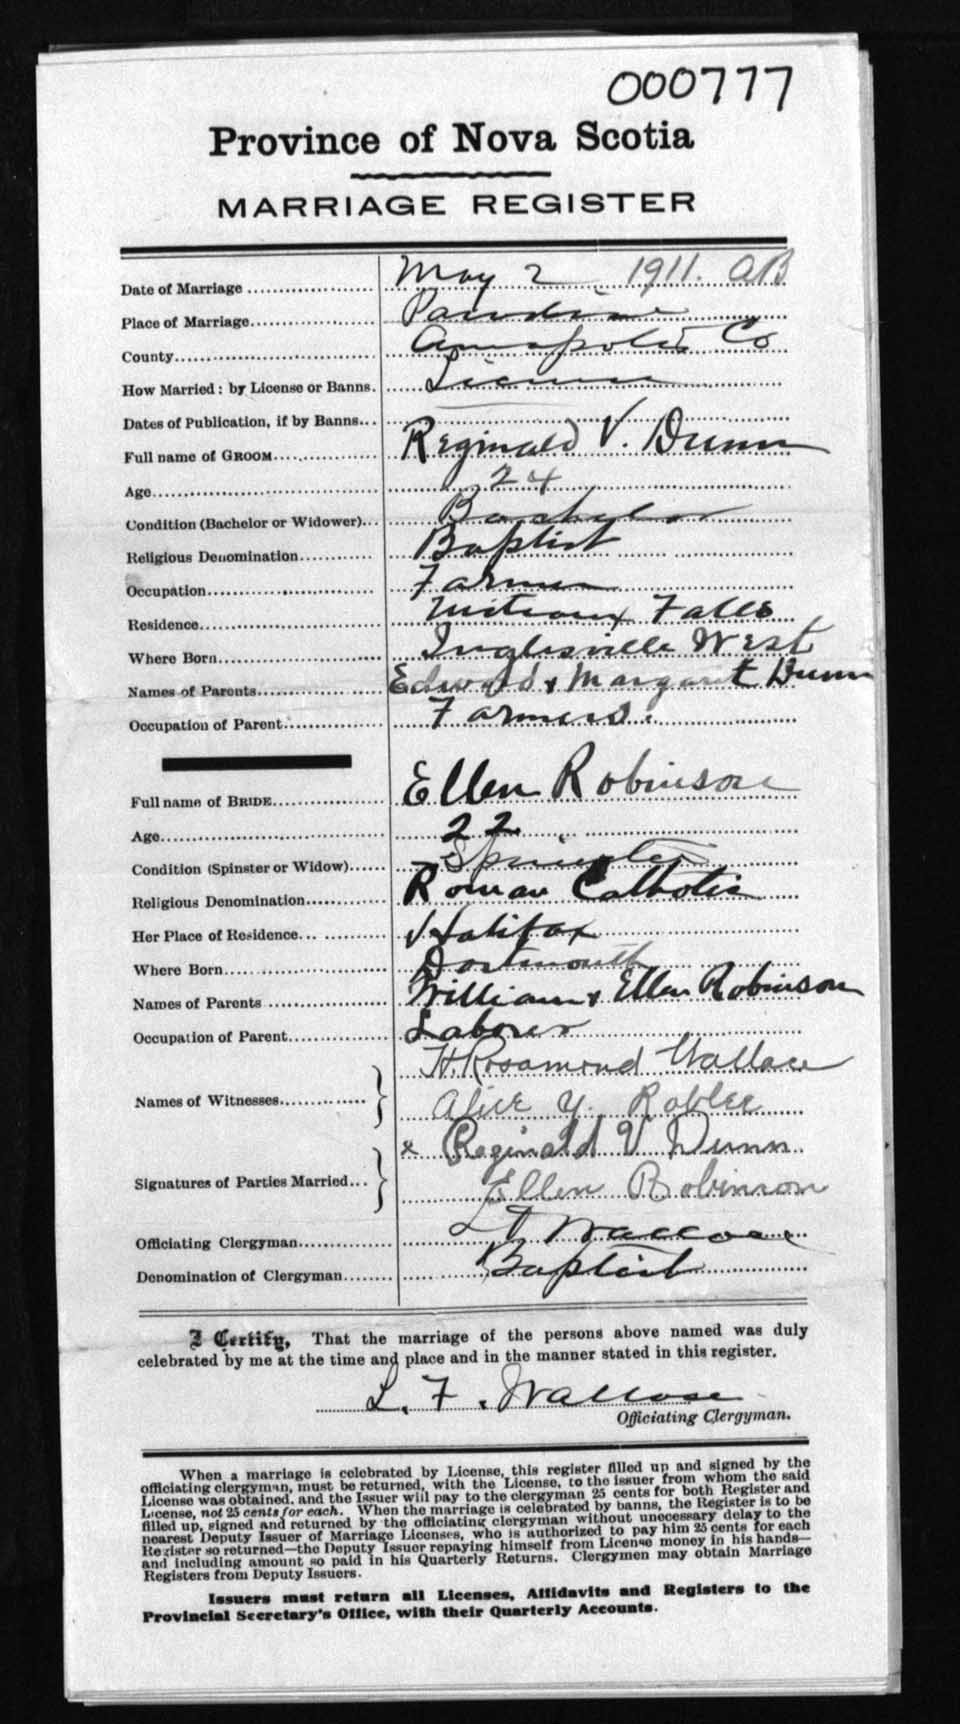 000777
Province of Nova Scotia
MARRIAGE REGISTER
Date of Marriage May 2 1911. AB
Place of Marriage Paradise
County Annapolis Co
How Married: by License or Banns. License
Dates of Publication, if by Banns
Full name of GROOM Reginald V. Dunn
Age 24
Condition (Bachelor or Widower) Bachelor
Religious Denomination Baptist
Occupation Farmer
Residence Falls
Where Born Inglisville West
Names of Parents Edward & Margaret Dunn
Occupation of Parent Farmers.
Full name of BRIDE Ellen Robinson
Age 22
Condition (Spinster or Widow) Spinster
Religious Denomination Roman Catholic
Her Place of Residence Halifax
Where Born Dartmouth
Names of Parents William & Ellen Robinson
Occupation of Parent Laborer
H. Rosamond Wallace
Names of Witnesses Alice Y. Roblee
x Reginald V Dunn
Signatures of Parties Married Ellen Robinson
Officiating Clergyman L F Wallace
Denomination of Clergyman Baptist
I Certify, That the marriage of the persons above named was duly
celebrated by me at the time and place and in the manner stated in this register.
L. F. Wallace
Officiating Clergyman.
When a marriage is celebrated by License, this register filled up and signed by the
officiating clergyman, must be returned, with the License, to the issuer from whom the said
License was obtained, and the Issuer will pay to the clergyman 25 cents for both Register and
License, not 25 cents for each. When the marriage is celebrated by banns, the Register is to be
filled up, signed and returned by the officiating clergyman without unnecessary delay to the
nearest Deputy Issuer of Marriage Licenses, who is authorized to pay him 25 cents for each
Register so returned—the Deputy Issuer repaying himself from License money in his hands—
and including amount so paid in his Quarterly Returns. Clergymen may obtain Marriage
Registers from Deputy Issuers.
Issuers must return all Licenses, Affidavits and Registers to the
Provincial Secretary's Office, with their Quarterly Accounts.